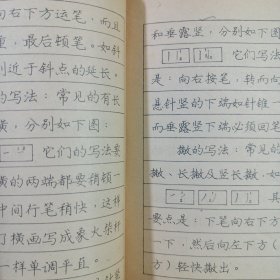 向右下方运笔，而且
重，最后顿笔。如斜
则近于斜点的延长。
的写法：常见的有长
横，分别如下图：
它们的写法要
横的两端都要稍顿一
中间行笔稍快，这样
万横画写成象火柴杆
一样单调平直。
和垂露竖，分别如下图
它们写法
是：向右按笔，转而向
悬针竖的下端如针锥一
而垂露竖下端必须回笔
撇的写法：常见
撇、长撇及竖长撇，如
具
要点是：下笔向右下方
一下，然后向左下方（
方）轻快撇出。